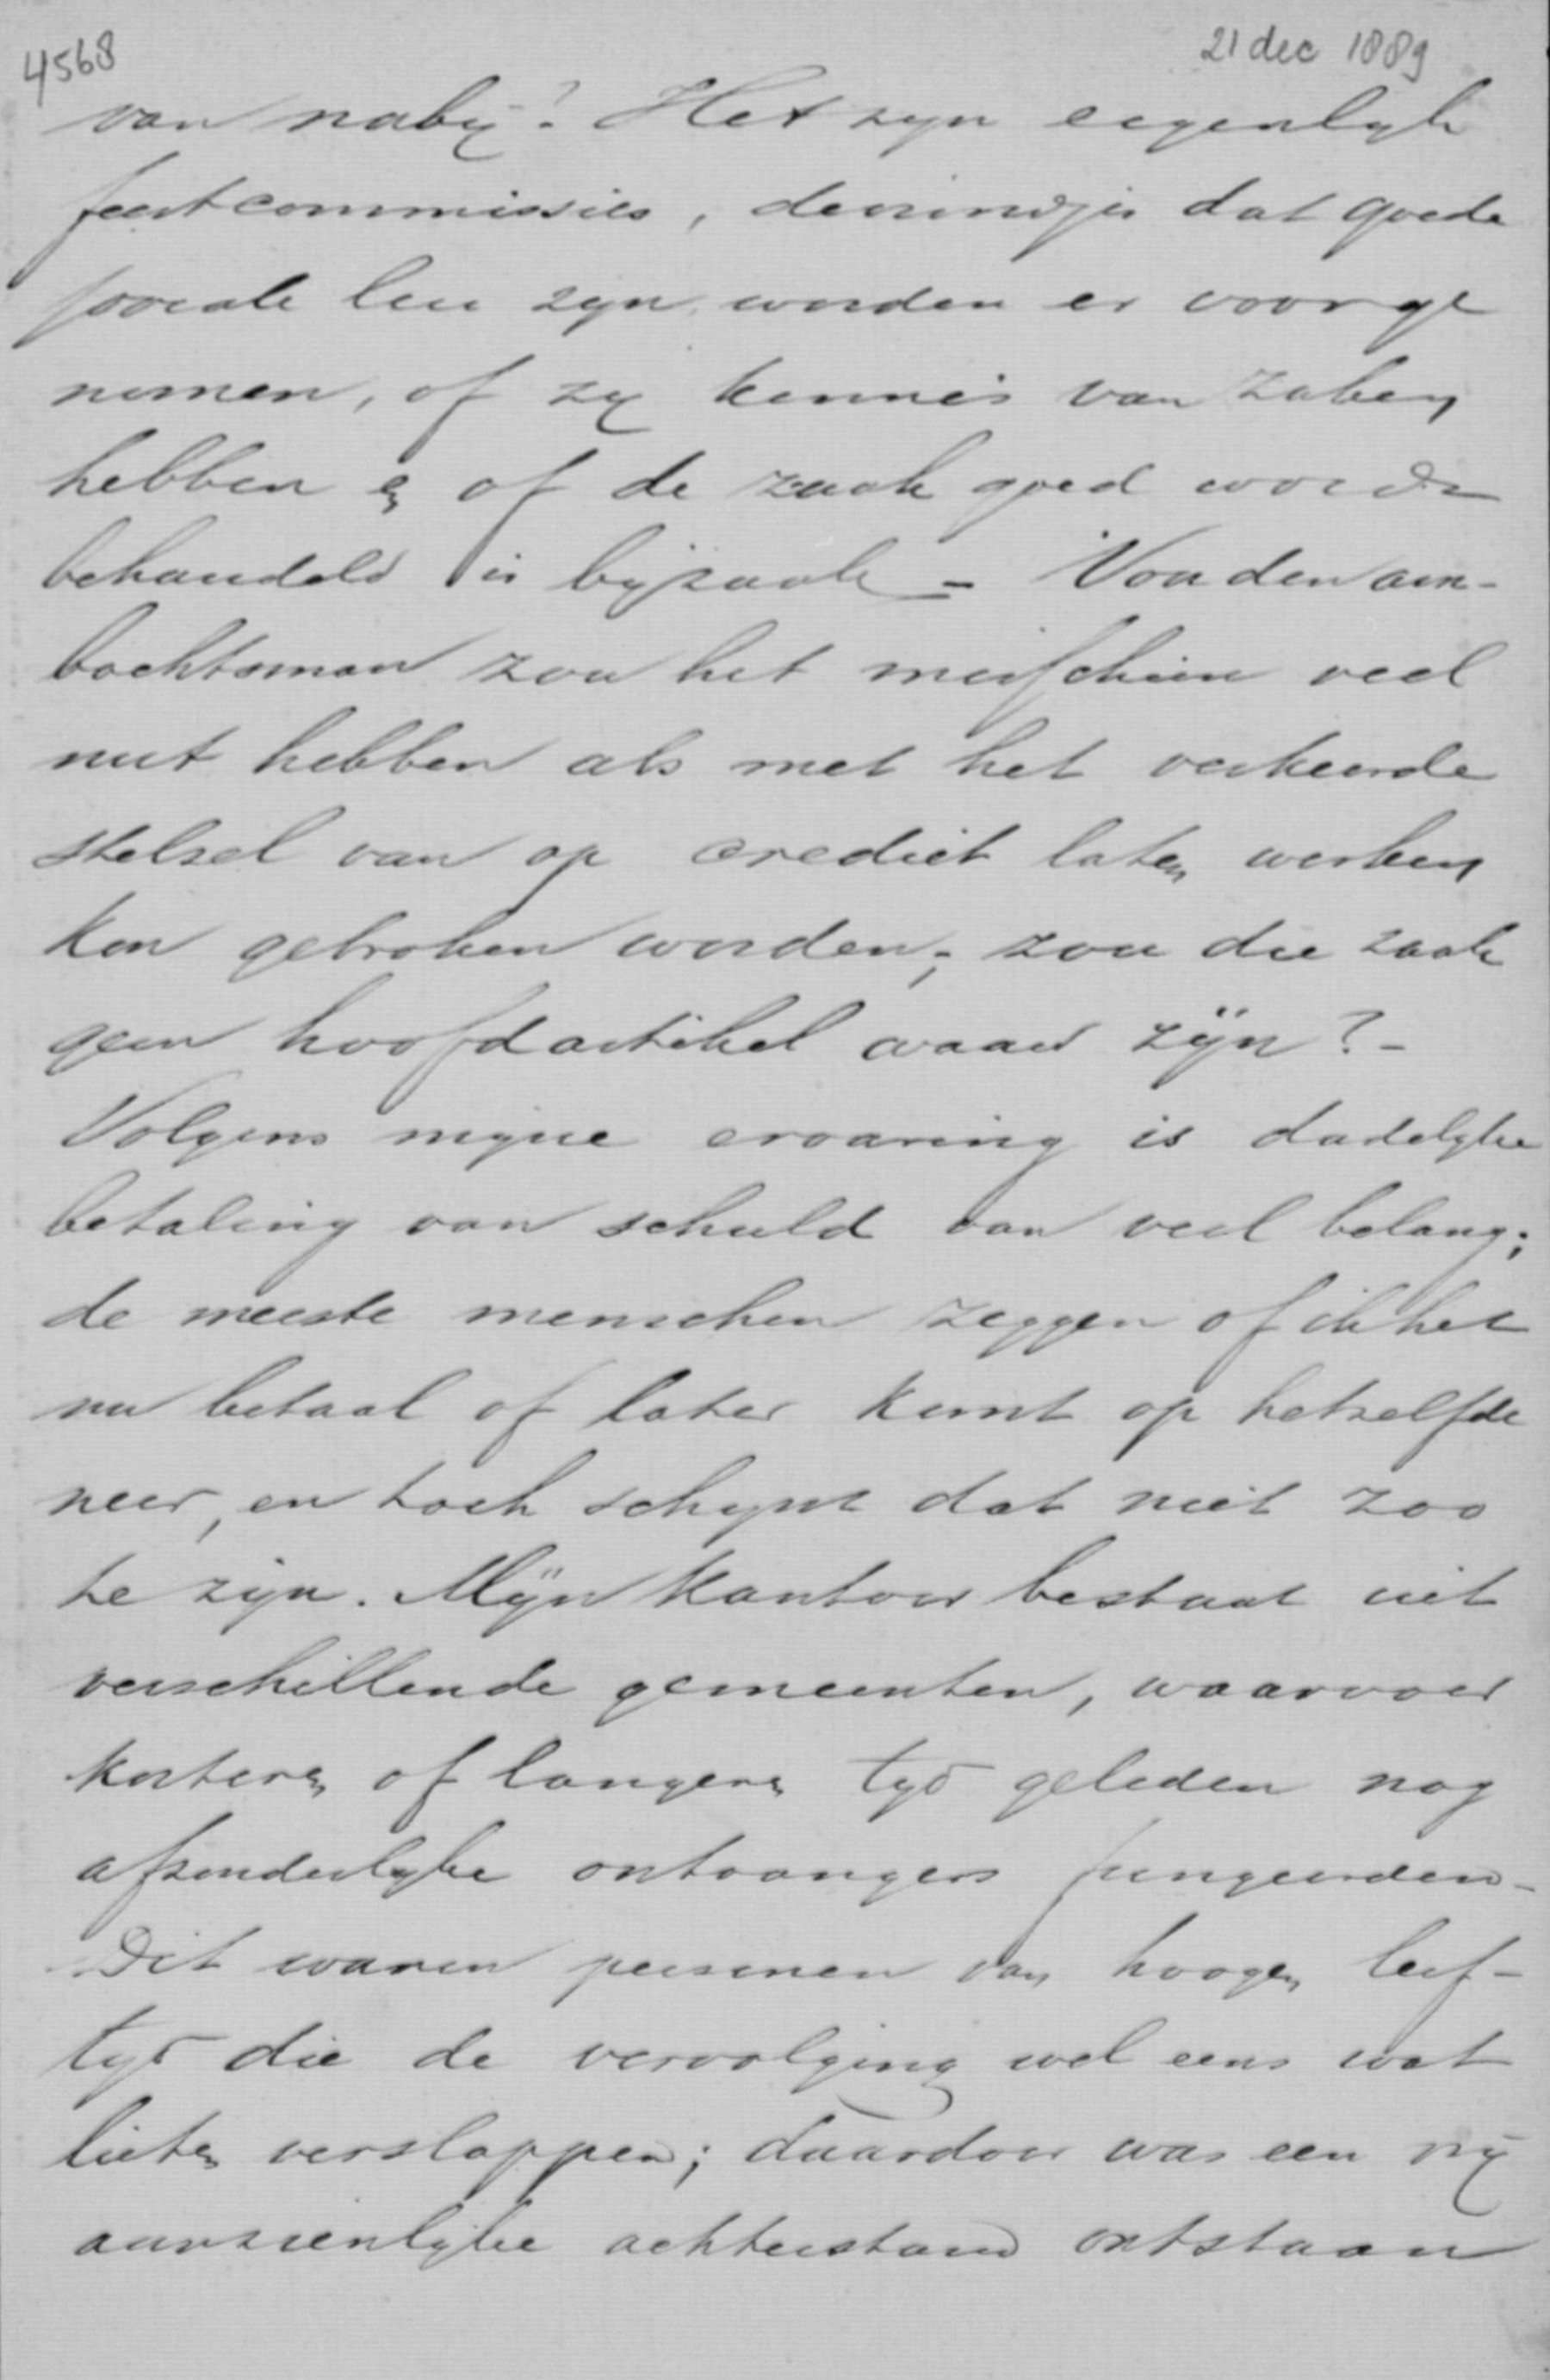 4568
21 dec 1889
van naby? Het zyn eigenlyk
feestcommissies, dat goede
joviale lui zyn, worden er voor ge
nomen, of zy kennis van zaken
hebben en of de zaak goed wordt
behandeld is byzaak – Voor den am-
bachtsman zou het misschien veel
nut hebben als met het verkeerde
stelsel van op crediet laten werken
kon gebroken worden; zou die zaak
geen hoofdartikel waard zÿn? –
Volgens myne ervaring is dadelyke
betaling van schuld van veel belang;
de meeste menschen zeggen of ik het
nu betaal of later komt op hetzelfde
neer, en toch schynt dat niet zoo
te zijn. Mÿn kantoor bestaat uit
verschillende gemeenten, waarvoor
korteren of langeren tyd geleden nog
afzonderlyke ontvangers fungeerden –
Dit waren personen van hoogen leef-
tyd die de vervolging wel eens wat
lieten verslappen; daardoor was een vry
aanzienlyke achterstand ontstaan